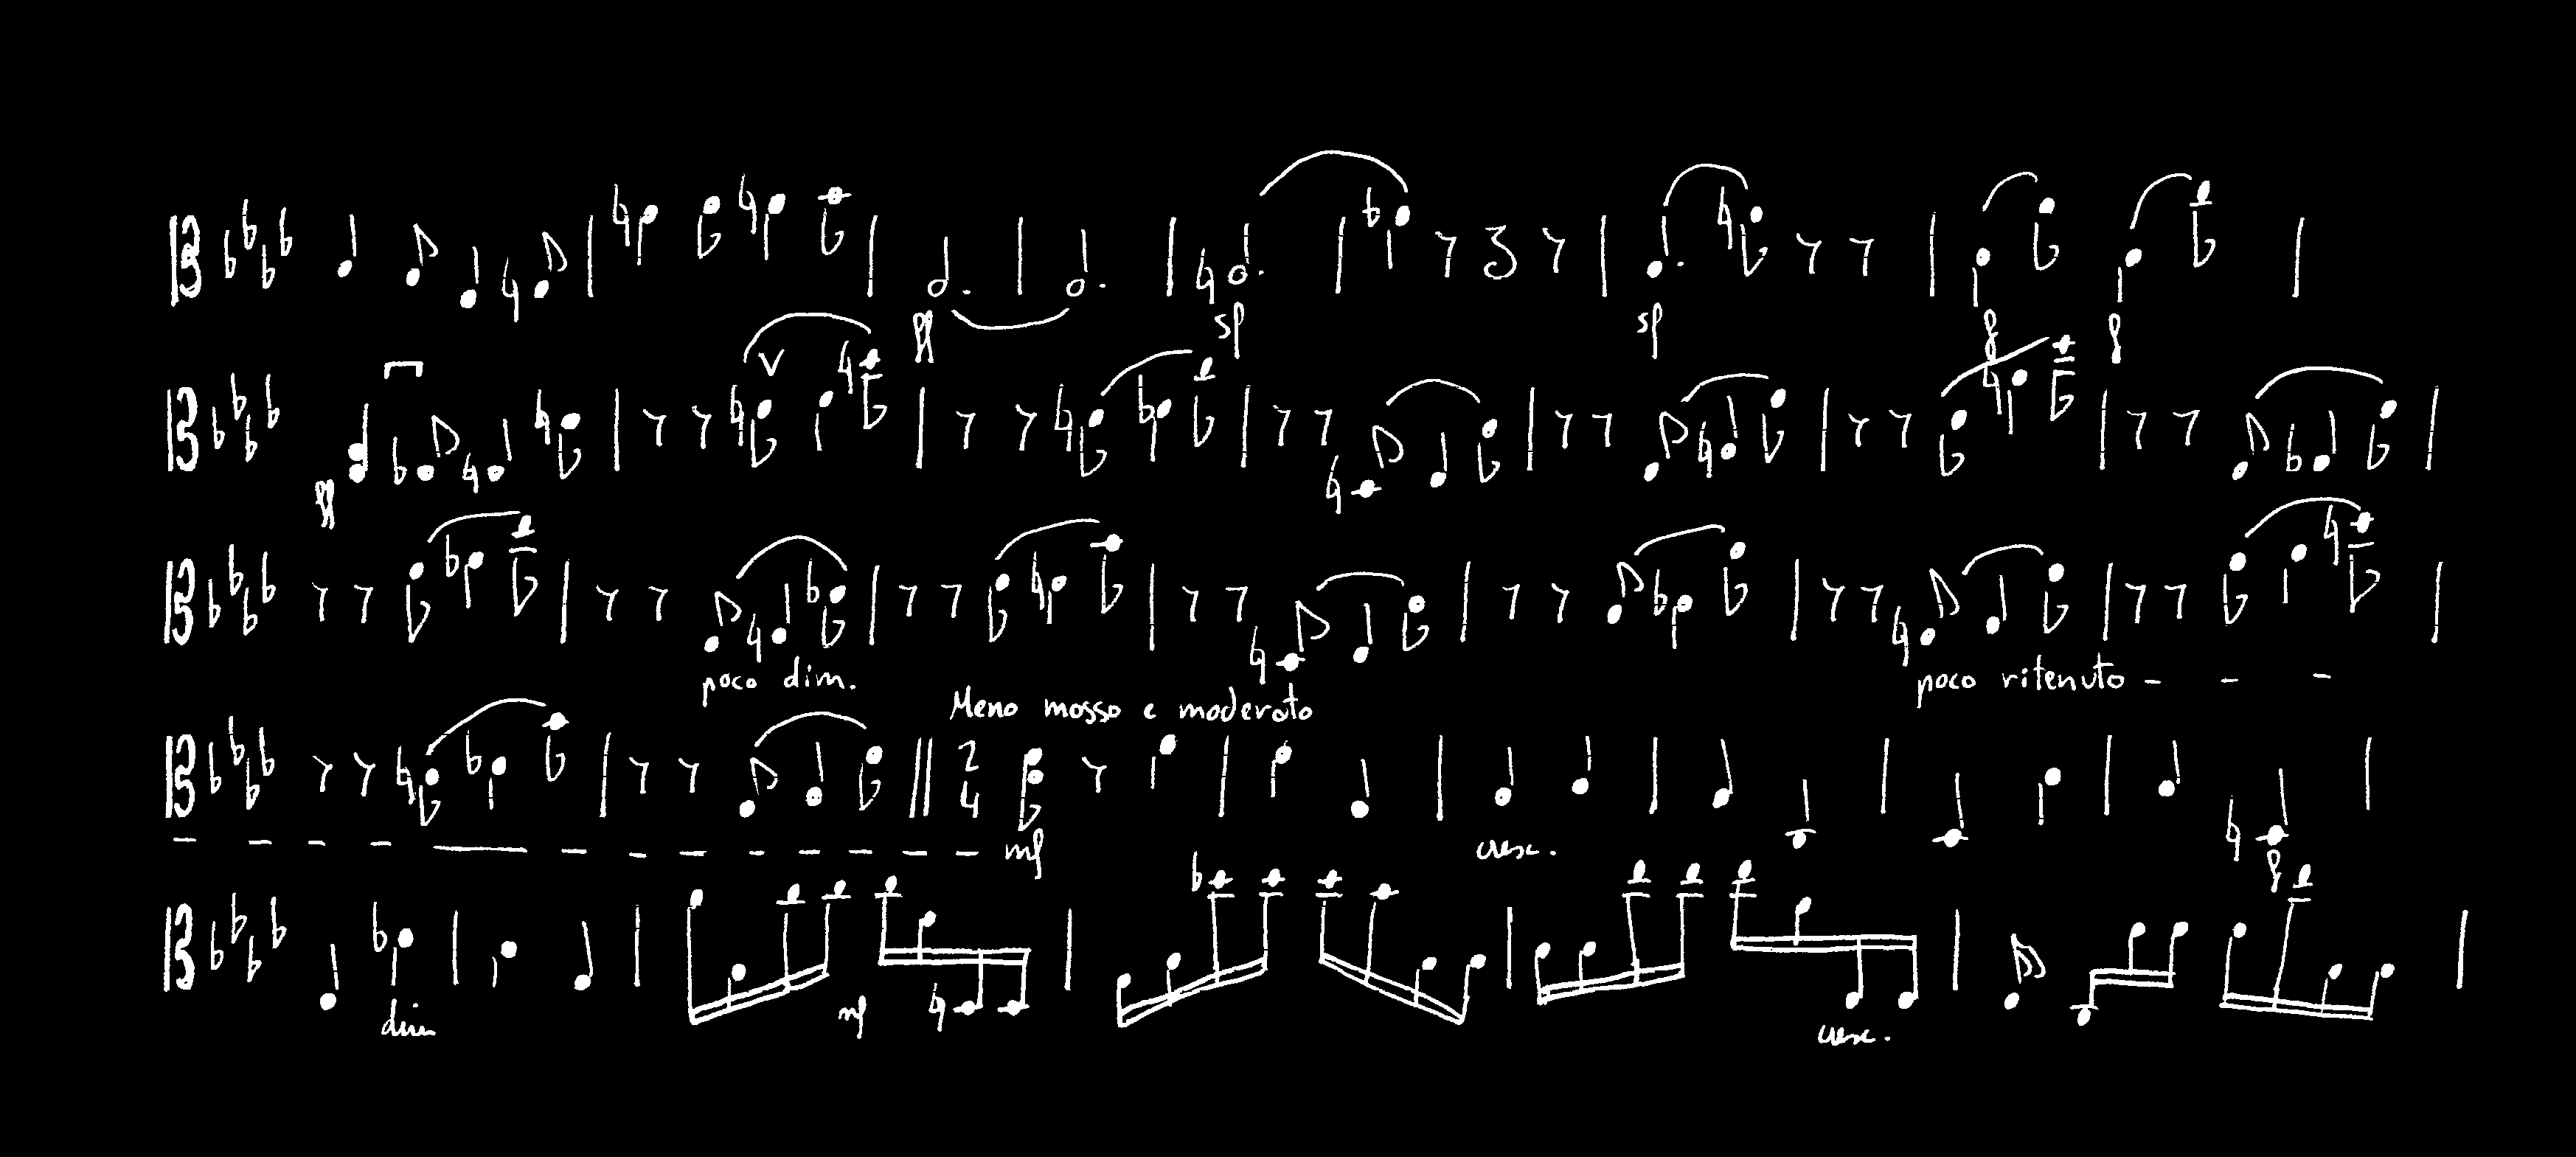 pp sp sp f f
pp
poco dim. poco ritenuto - - -
Meno mosso e moderato
2
4
mf cresc. f
dim mf cresc.